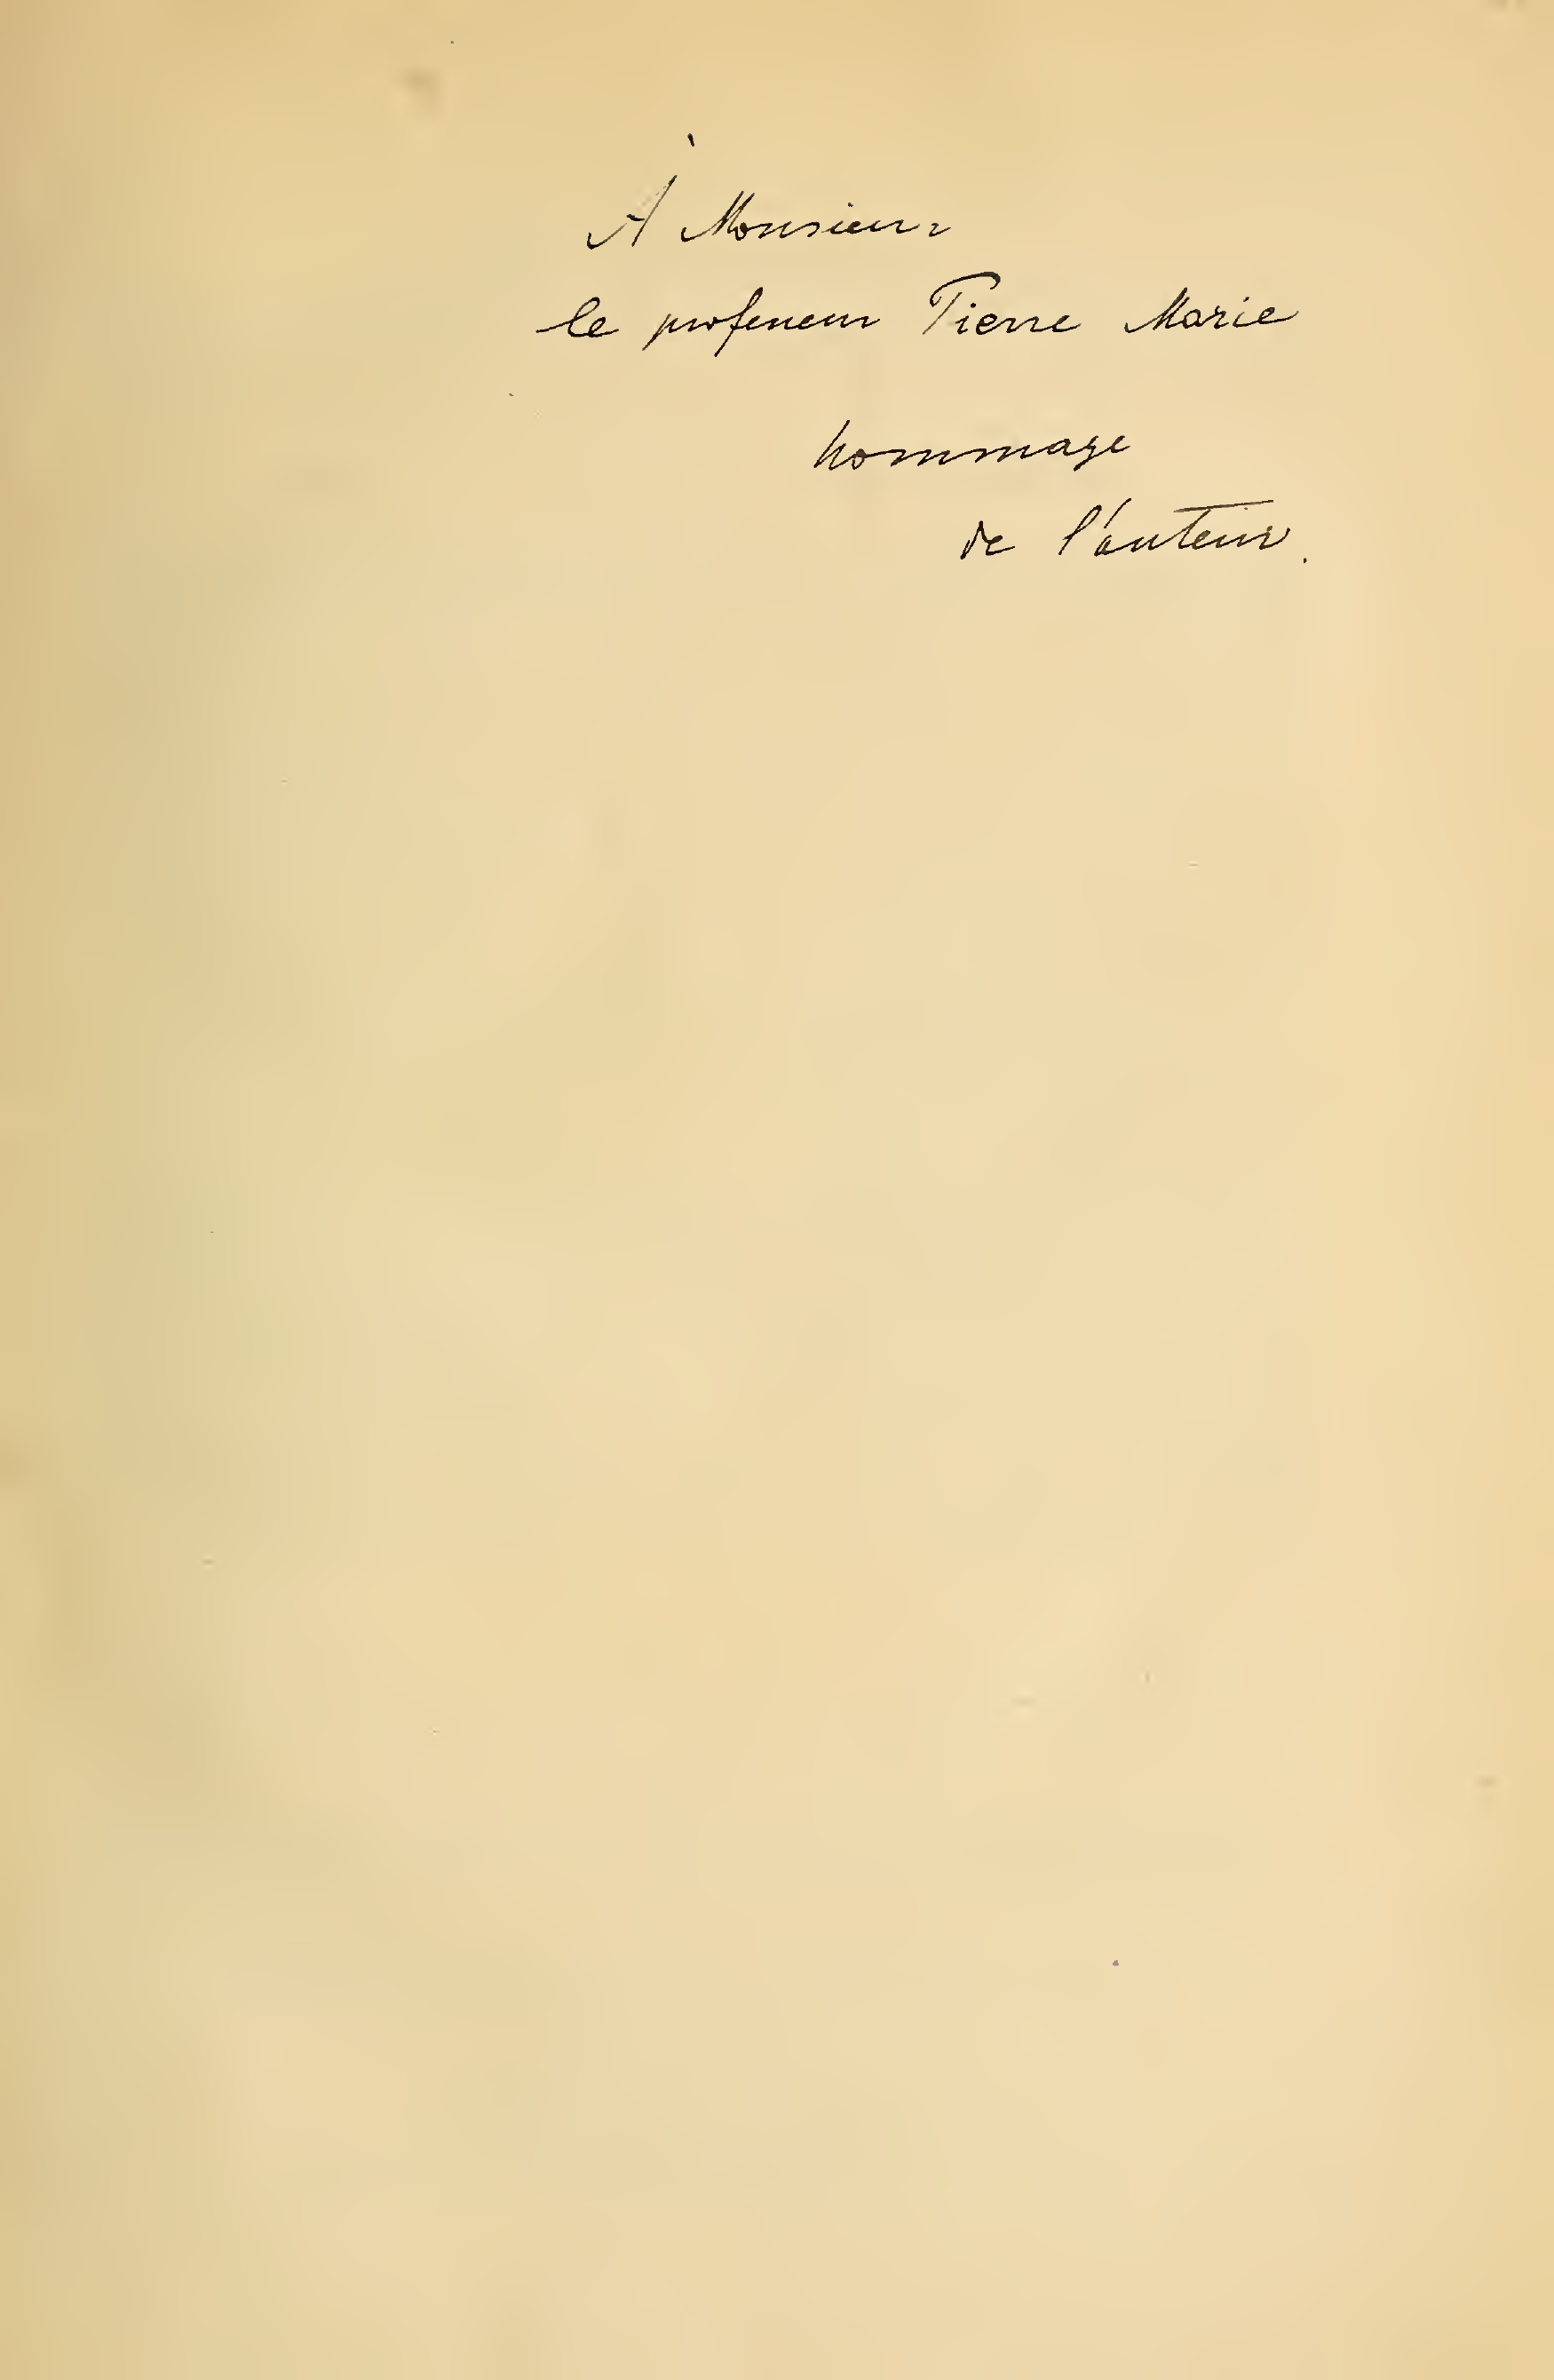 À Monsieur
le professeur Pierre Marie
hommage
de l'auteur.